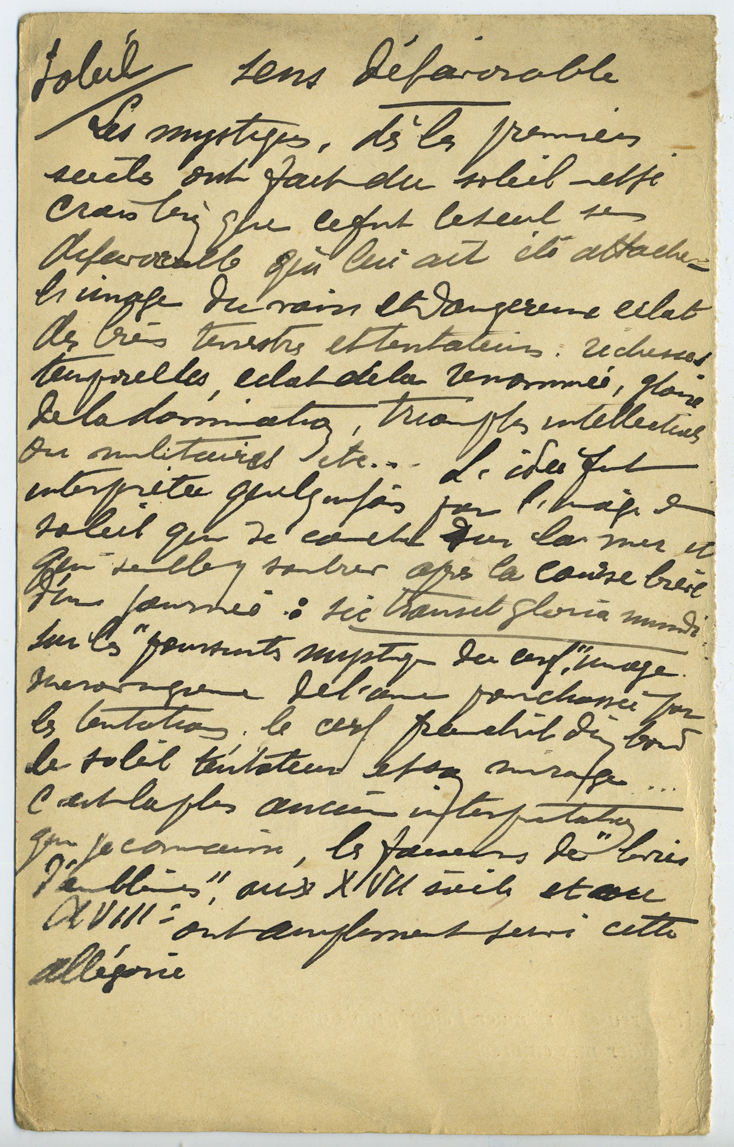 Soleil sens défavorable
Les mystiques, dès les premiers
siècles ont fait du soleil – et je
crois bien que ce fut le seul sens
défavorable qui lui ait été attaché –
l'image du vain et dangereux éclat
des biens terrestres et tentateurs : richesses
temporelles, éclat de la renommée, gloire
de la domination, triomphes intellectuels
ou militaires etc... L'idée fut
interprétée quelquefois par l'image du
soleil qui se couche sur la mer et
qui semble y sombrer après la course brève
d'une journée : sic transit gloria mundi.
sur les "poursuites mystiques du cerf", image
mérovingienne de l'âme pourchassée par
les tentations, le cerf franchit d'un bond
le soleil tentateur et son mirage ...
C'est la plus ancienne interprétation
que je connaisse, les faiseurs de "livres
d'emblèmes", aux XVII siècle et au
XVIII = ont amplement servi cette
allégorie